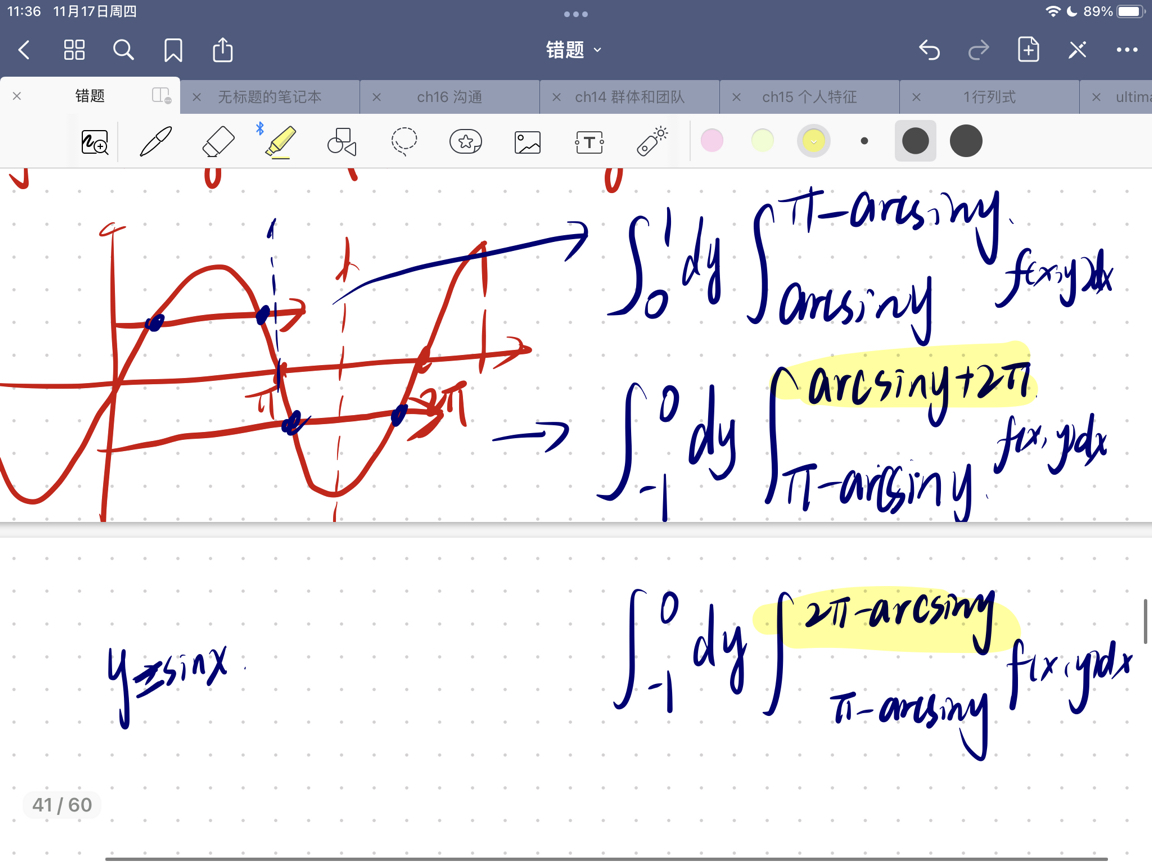 11:36 11月17日周四
89%
错题
错题
无标题的笔记本
ch16 沟通
ch14 群体和团队
ch15 个人特征
1行列式
ultima
∫₀¹ dy ∫_{arcsiny}^{π-arcsiny} f(x,y)dx
π
2π
∫₋₁⁰ dy ∫_{π-arcsiny}^{arcsiny+2π} f(x,y)dx
y=sinx
∫₋₁⁰ dy ∫_{π-arcsiny}^{2π-arcsiny} f(x,y)dx
41 / 60